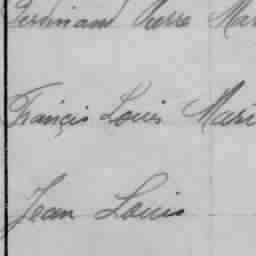 Ferdinand Pierre Mar
Françis Louis Mari
Jean Louis